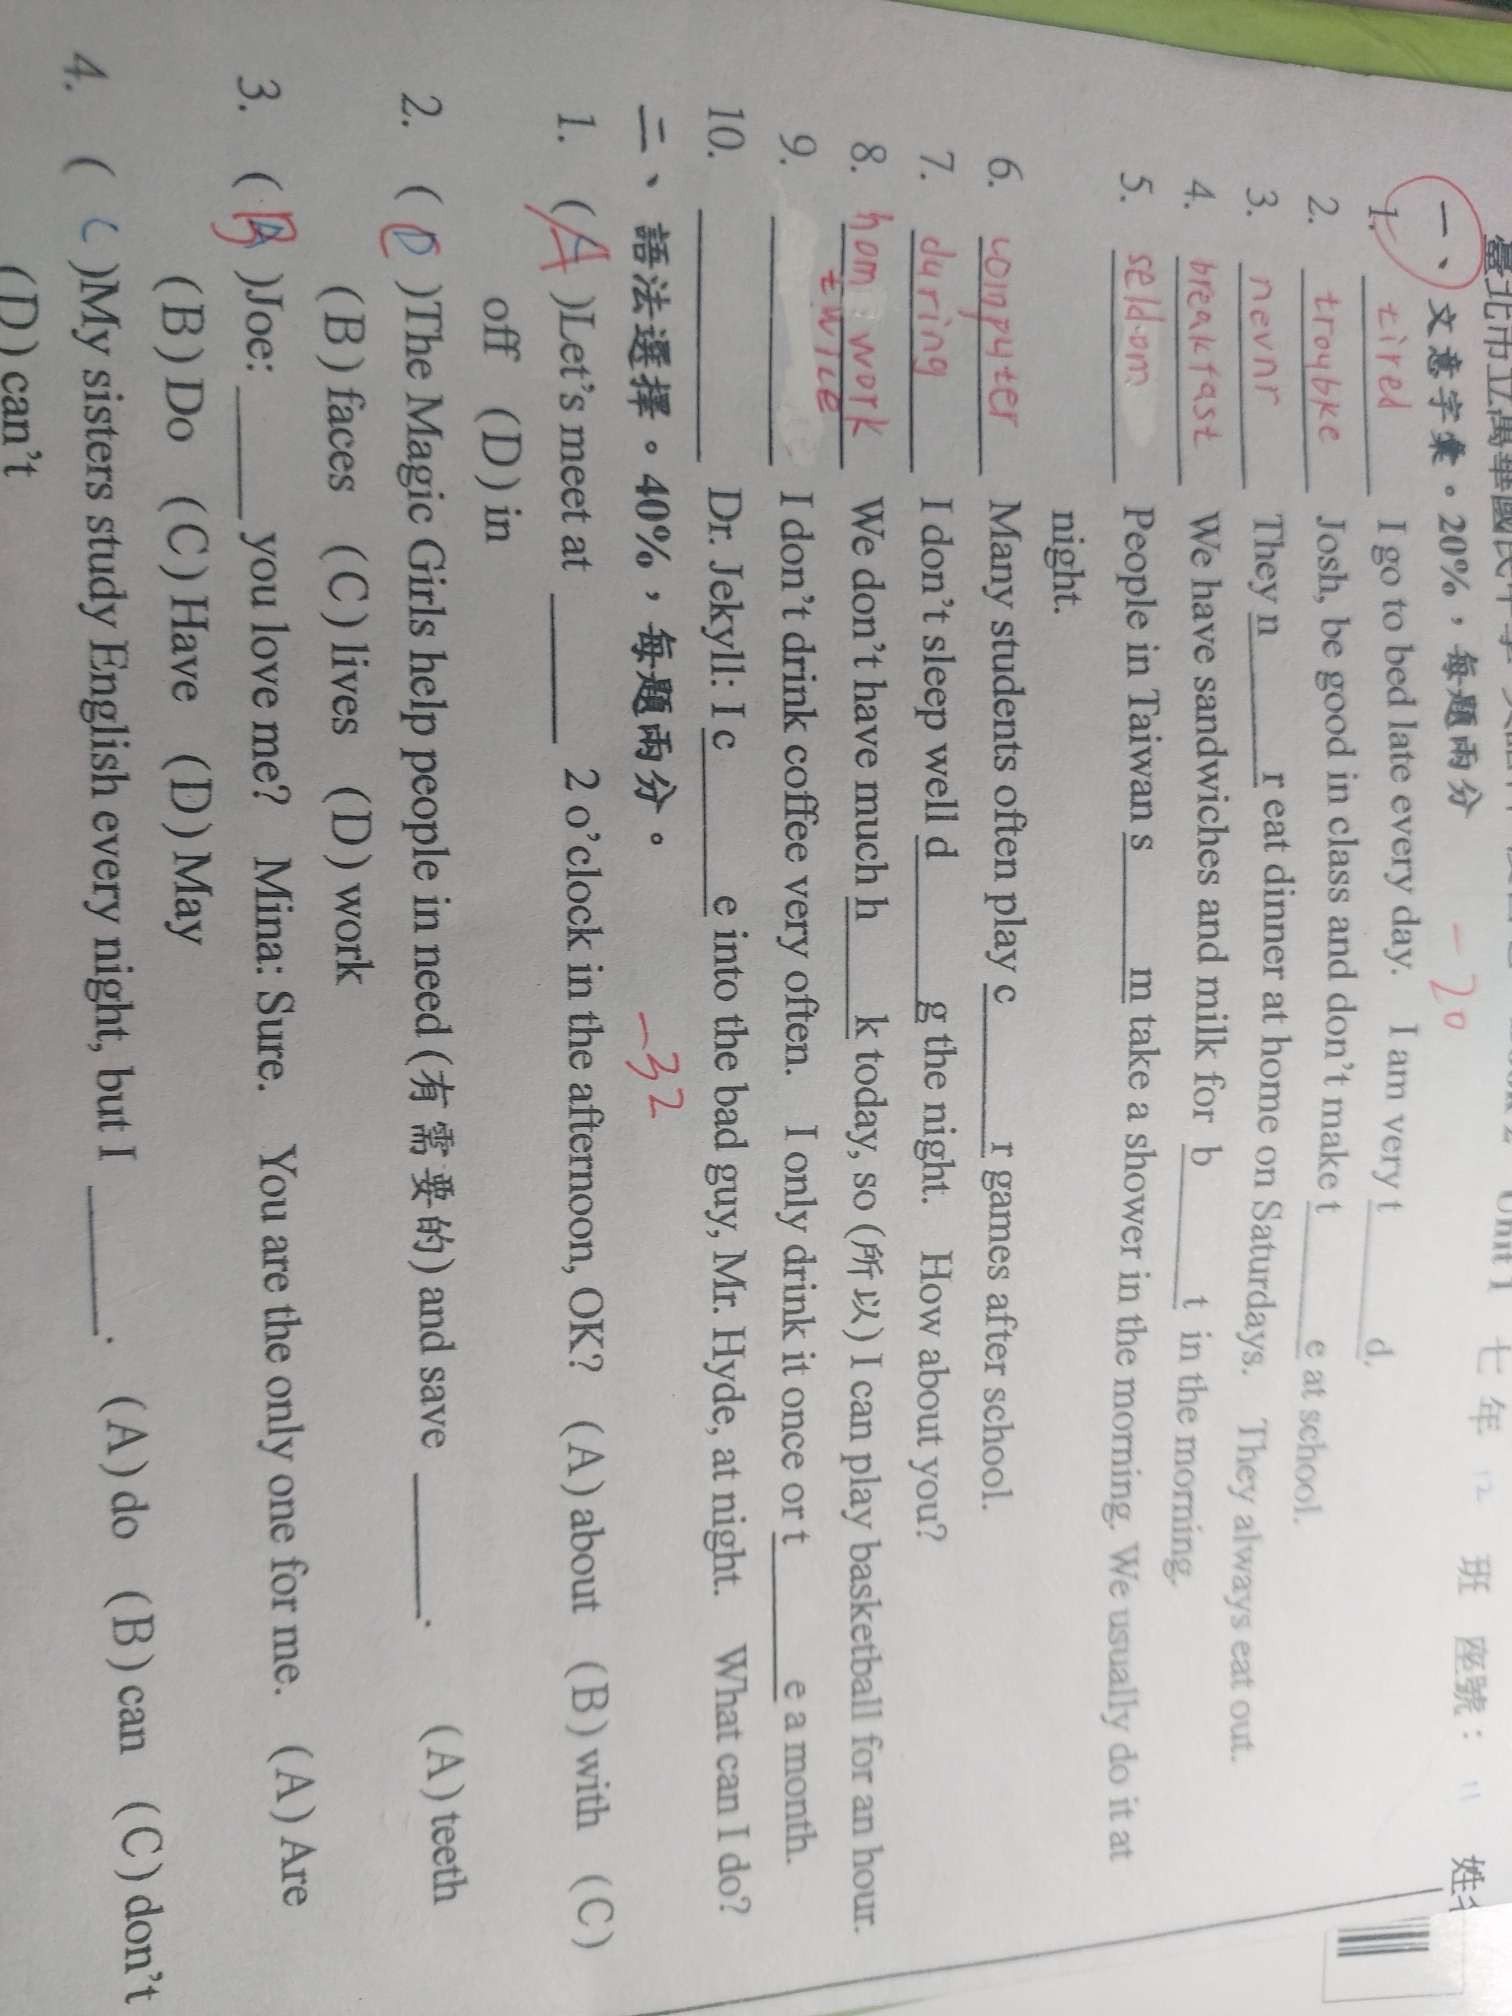 一、文意字彙。20%，每題兩分 -20
1. tired I go to bed late every day. I am very t d.
2. troybke Josh, be good in class and don't make t e at school.
3. nevnr They n r eat dinner at home on Saturdays. They always eat out.
4. breakfast We have sandwiches and milk for b t in the morning.
5. seldom People in Taiwan s m take a shower in the morning. We usually do it at
night.
6. computer Many students often play c r games after school.
7. during I don't sleep well d g the night. How about you?
8. homework We don't have much h k today, so (所以) I can play basketball for an hour.
twice
9. I don't drink coffee very often. I only drink it once or t e a month.
10. Dr. Jekyll: I c e into the bad guy, Mr. Hyde, at night. What can I do?
二、語法選擇。40%，每題兩分。 -32
1. (A)Let's meet at 2 o'clock in the afternoon, OK? (A) about (B) with (C)
off (D) in
2. (D)The Magic Girls help people in need (有需要的) and save . (A) teeth
(B) faces (C) lives (D) work
3. (B)Joe: you love me? Mina: Sure. You are the only one for me. (A) Are
(B) Do (C) Have (D) May
4. (C)My sisters study English every night, but I . (A) do (B) can (C) don't
(D) can't